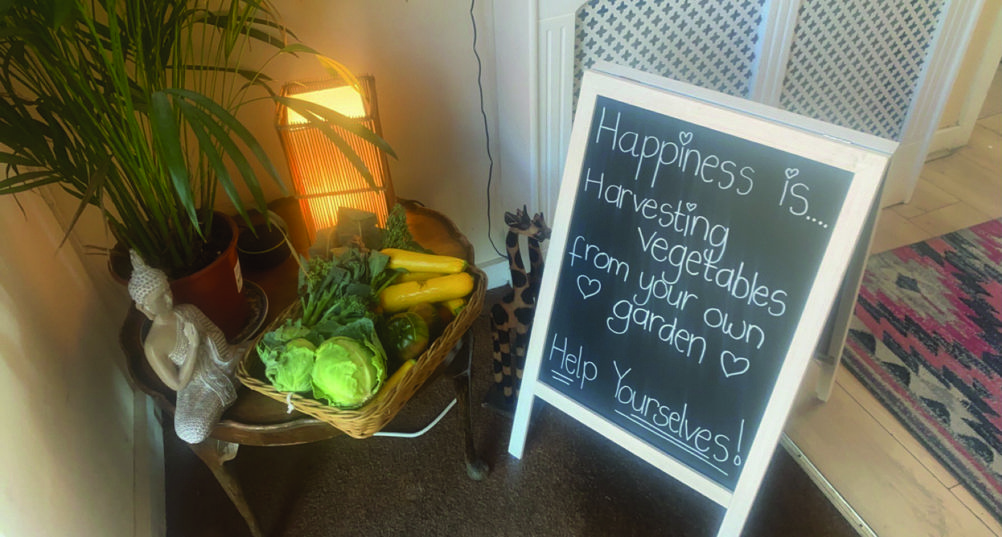 Happiness is....
Harvesting
vegetables
from your own
garden
Help Yourselves!